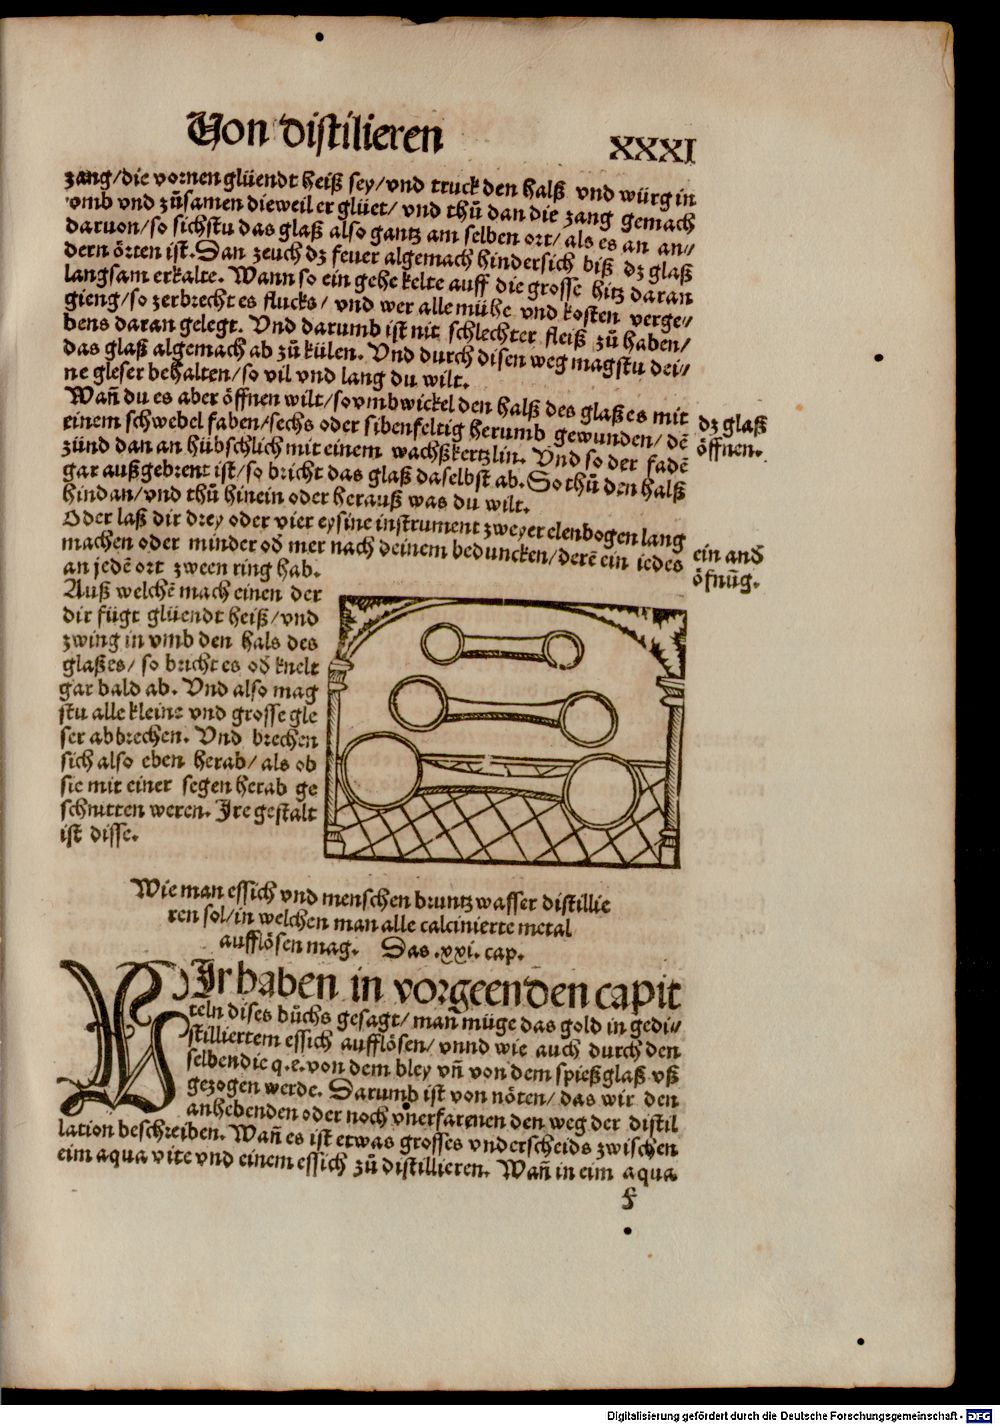 Von distilieren
XXXI
zang/die vornen glüendt heiß sey/vnd truck den halß vnd würg in
vmb vnd zůsamen dieweil er glüet/ vnd thů dan die zang gemach
daruon/so sichstu das glaß also gantz am selben ort/als es an an//
dern örten ist. Dan zeuch dz feuer algemach hindersich biß dz glaß
langsam erkalte. Wann so ein gehe kelte auff die grosse hitz daran
gieng/so zerbrecht es flucks/ vnd wer alle mühe vnd kosten verge//
bens daran gelegt. Vnd darumb ist nit schlechter fleiß zů haben/
das glaß algemach ab zů külen. Vnd durch disen weg magstu dei//
ne gleser behalten/so vil vnd lang du wilt.
Wañ du es aber öffnen wilt/so vmbwickel den halß des glaßes mit
einem schwebel faden/sechs oder sibenfeltig herumb gewunden/ dē
zünd dan an hübschlich mit einem wachßkertzlin. Vnd so der fadē
gar außgebrent ist/so bricht das glaß daselbst ab. So thů den halß
hindan/vnd thů hinein oder herauß was du wilt.
dz glaß
öffnen.
Oder laß dir drey oder vier eysine instrument zweyer elenbogen lang
machen oder minder od̄ mer nach deinem beduncken/derē ein iedes
an jedē ort zween ring hab.
ein and̄
öfnūg.
Auß welchē mach einen der
dir fügt glüendt heiß/vnd
zwing in vmb den hals des
glaßes/ so bricht es od̄ knelt
gar bald ab. Vnd also mag
stu alle kleine vnd grosse gle
ser abbrechen. Vnd brechen
sich also eben herab/ als ob
sie mit einer segen herab ge
schnitten weren. Ire gestalt
ist disse.
Wie man essich vnd menschen bruntzwasser distillie
ren sol/in welchen man alle calcinierte metal
aufflösen mag. Das .xxi. cap.
WIr haben in vorgeenden capit
teln dises bůchs gesagt/ man müge das gold in gedi//
stilliertem essich aufflösen/ vnnd wie auch durch den
selben die q.e. von dem bley vñ von dem spießglaß vß
gezogen werde. Darumb ist von nöten/ das wir den
anhebenden oder noch vnerfarenen den weg der distil
lation beschreiben. Wañ es ist etwas grosses vnderscheids zwischen
eim aqua vite vnd einem essich zů distillieren. Wañ in eim aqua
f
Digitalisierung gefördert durch die Deutsche Forschungsgemeinschaft - DFG